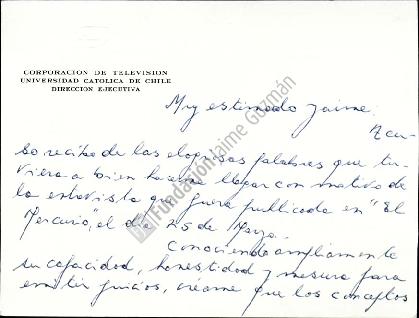 CORPORACION DE TELEVISION
UNIVERSIDAD CATOLICA DE CHILE
DIRECCION EJECUTIVA
Muy estimado Jaime:
Acu-
so recibo de las elogiosas palabras que tu-
viera a bien hacerme llegar con motivo de
la entrevista que fuera publicada en "El
Mercurio", el día 25 de Mayo.
Conociendo ampliamente
su capacidad, honestidad y mesura para
emitir juicios, créame que los conceptos
Fundación Jaime Guzmán